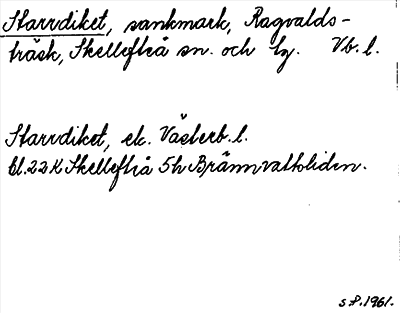 Starrdiket, sankmark, Ragvalds-
träsk, Skellefteå sn. och tg. Vb. l.
Starrdiket, ek. Västerb. l.
bl. 22 K Skellefteå 5h Brännvattsliden.
s P. 1961.